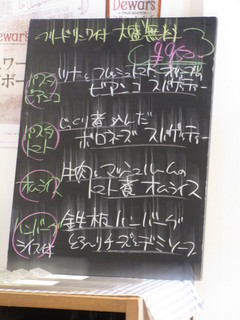 Dewar's
Dewar's
フリードリンク付 大盛無料
パスタ
ビアンコ
ツナとフレッシュトマト
ビアンコ スパゲッティー
パスタ
トマト
じっくり煮込んだ
ボロネーズ スパゲッティー
オムライス
牛肉とマッシュルームの
トマト煮 オムライス
ハンバーグ
ライス付
鉄板ハンバーグ
とろ〜りチーズとデミソース